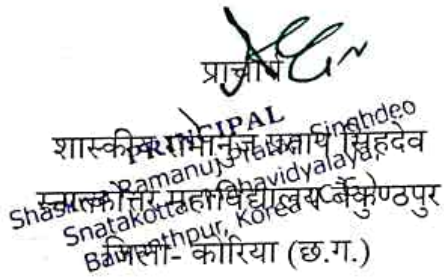 प्राचार्य
शासकीय रामानुज प्रताप सिंहदेव
स्नातकोत्तर महाविद्यालय बैकुण्ठपुर
जिला- कोरिया (छ.ग.)
PRINCIPAL
Shaskiya Ramanuj Pratap Singhdeo
Snatakottar Mahavidyalaya,
Baikunthpur, Korea